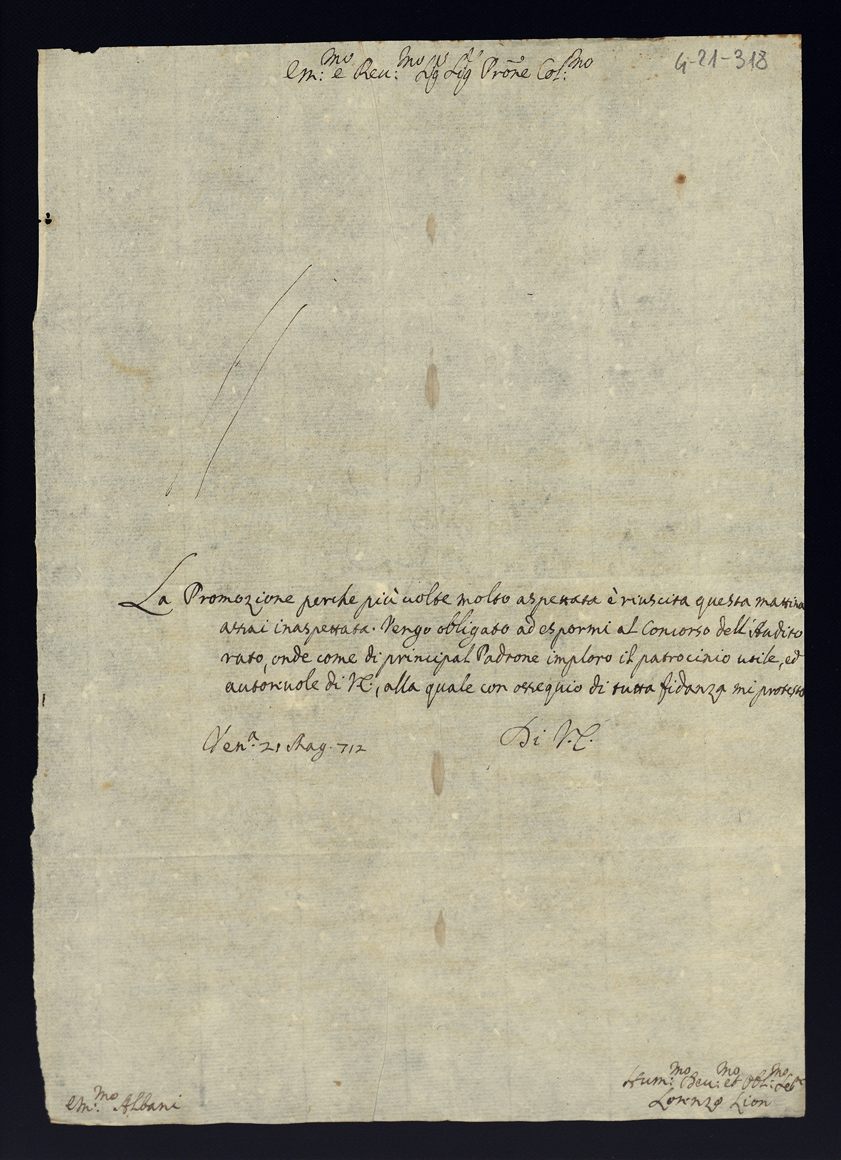 4-21-318
Em:mo e Reu:mo Sig Sig Prõne Col:mo
La Promozione perche più uolte molto aspettata è riuscita questa mattina
assai inaspettata. Vengo obligato ad espormi al Concorso dell'Audito
rato, onde come di principal Padrone imploro il patrocinio utile, ed
autoreuole di V.E:, alla quale con ossequio di tutta fidanza mi protesto
Ven.a 21 Mag. 712
Di V.E.
Hum:mo Deu:mo et Obl:mo
Lorenzo Lion
Em:mo Albani